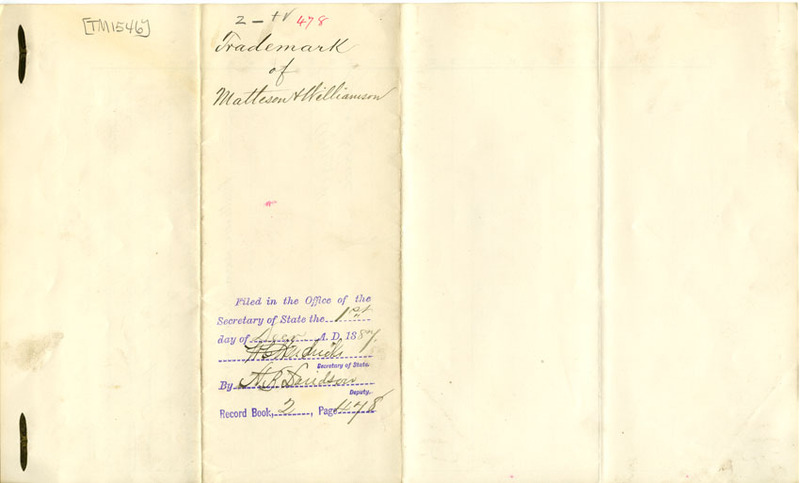 [TM1546]
2 - 478
Trademark
of
Matteson & Williamson
Filed in the Office of the
Secretary of State the 1st
day of Decr A. D. 1887
W C Hendricks
Secretary of State.
By Davidson
Deputy.
Record Book, 2, Page 478